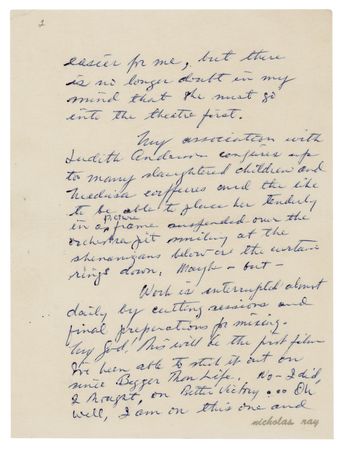 2
easier for me, but there
is no longer doubt in my
mind that she must go
into the theatre first.
My association with
Judith Anderson conjures up
to many slaughtered children and
Medusa coiffures and the like
to be able to place her tenderly
in a picture frame suspended over the
orchestra pit smiling at the
shenanigans below as the curtain
rings down. Maybe - but -
Work is interrupted almost
daily by cutting sessions and
final preparations for mixing.
My God! This will be the first film
I've been able to stick it out on
since Bigger Than Life. No - I did,
I thought, on Bitter Victory... Oh
well, I am on this one and
nicholas ray